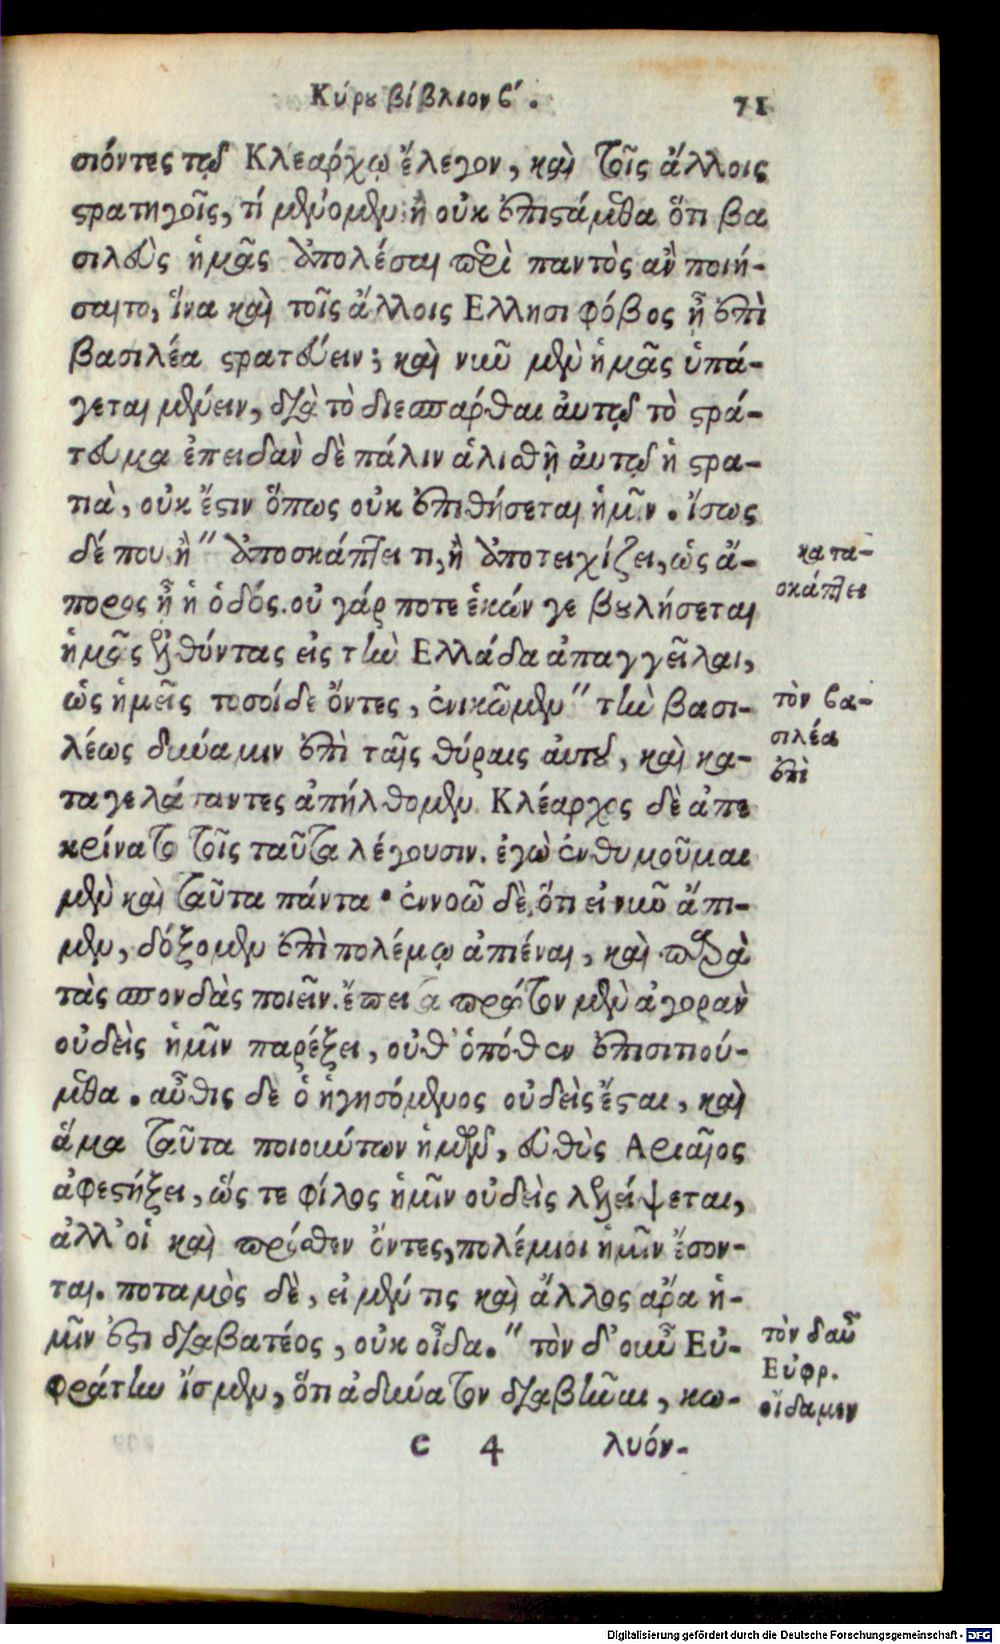 Κύρου βίβλιον β´. 71
σιόντες τῷ Κλεάρχῳ ἔλεγον, καὶ τοῖς ἄλλοις
στρατηγοῖς, τί μένομεν; ἢ οὐκ ἐπιστάμεθα ὅτι βα
σιλεὺς ἡμᾶς ἀπολέσαι περὶ παντὸς ἂν ποιή-
σαιτο, ἵνα καὶ τοῖς ἄλλοις Ελλησι φόβος ᾖ ἐπὶ
βασιλέα στρατεύειν; καὶ νῦν μὲν ἡμᾶς ὑπά-
γεται μένειν, διὰ τὸ διεσπάρθαι ἀυτῷ τὸ στρά-
τευμα ἐπειδὰν δὲ πάλιν ἁλισθῇ ἀυτῷ ἡ στρα-
τιὰ, οὐκ ἔστιν ὅπως οὐκ ἐπιθήσεται ἡμῖν. ἴσως
δέ που ἢ" ἀποσκάπτει τι, ἢ ἀποτειχίζει, ὡς ἄ-
πορος ᾖ ἡ ὁδός. οὐ γάρ ποτε ἑκών γε βουλήσεται
ἡμᾶς ἐλθόντας εἰς τὴν Ελλάδα ἀπαγγεῖλαι,
ὡς ἡμεῖς τοσοίδε ὄντες, ἐνικῶμεν" τὴν βασι-
λέως δύναμιν ἐπὶ ταῖς θύραις ἀυτοῦ, καὶ κα-
ταγελάσαντες ἀπήλθομεν Κλέαρχος δὲ ἀπε
κρίνατο τοῖς ταῦτα λέγουσιν. ἐγὼ ἐνθυμοῦμαι
μὲν καὶ ταῦτα πάντα· ἐννοῶ δὲ, ὅτι εἰ νῦν ἄπι-
μεν, δόξομεν ἐπὶ πολέμῳ ἀπιέναι, καὶ παρὰ
τὰς σπονδὰς ποιεῖν. ἔπειτα πρῶτον μὲν ἀγορὰν
οὐδεὶς ἡμῖν παρέξει, οὐθ᾽ ὁπόθεν ἐπισιτιού-
μεθα. αὖθις δὲ ὁ ἡγησόμενος οὐδεὶς ἔσται, καὶ
ἅμα ταῦτα ποιούντων ἡμῶν, εὐθὺς Αριαῖος
ἀφεστήξει, ὥς τε φίλος ἡμῖν οὐδεὶς λελείψεται,
ἀλλ᾽ οἱ καὶ πρόσθεν ὄντες, πολέμιοι ἡμῖν ἔσον-
ται. ποταμὸς δὲ, εἰ μέν τις καὶ ἄλλος ἄρα ἡ-
μῖν ἐστι διαβατέος, οὐκ οἶδα." τὸν δ᾽ οὖν Εὐ-
φράτην ἴσμεν, ὅτι ἀδύνατον διαβῆναι, κω-
c 4 λυόν-
κατα-
σκάπτει
τὸν βα-
σιλέα
ἐπὶ
τὸν δ᾽ αὖ
Εὐφρ.
οἴδαμεν
Digitalisierung gefördert durch die Deutsche Forschungsgemeinschaft - DFG